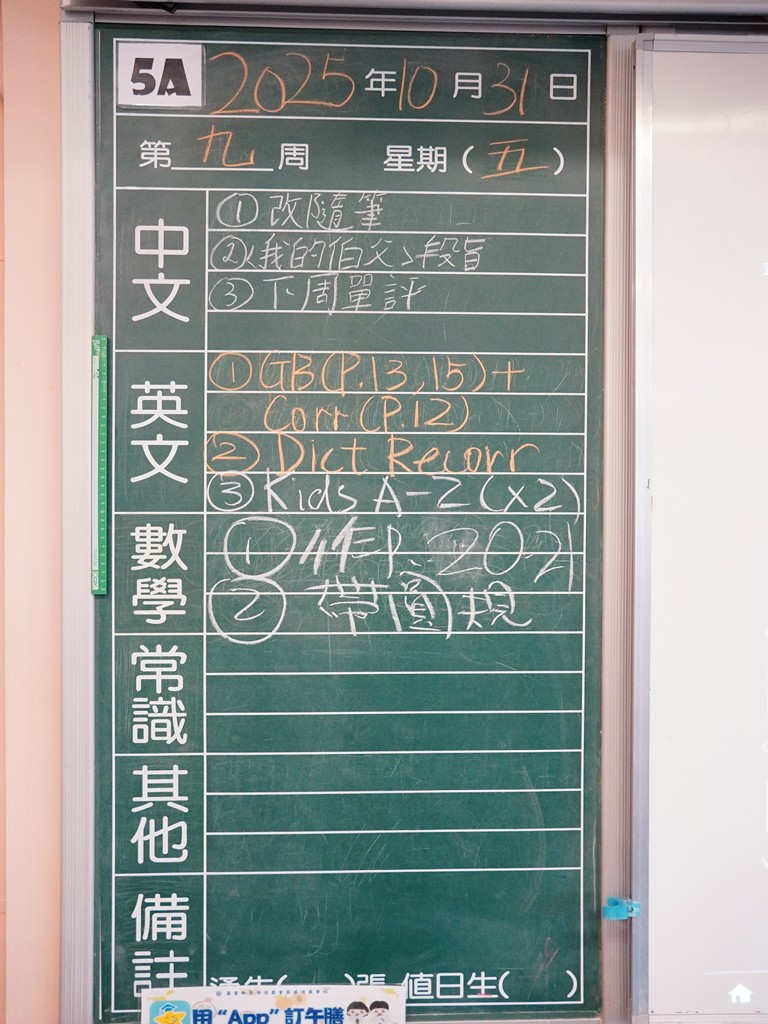 5A 2025年10月31日
第九周 星期(五)
中文
①改隨筆
②〈我的伯父〉段旨
③下周單評
英文
①GB(P.13,15)+
Corr(P.12)
②Dict Recorr
③Kids A-Z(x2)
數學
①作P.20-21
②帶圓規
常識
其他
備註
通告( )張 值日生( )
用“App”訂午膳